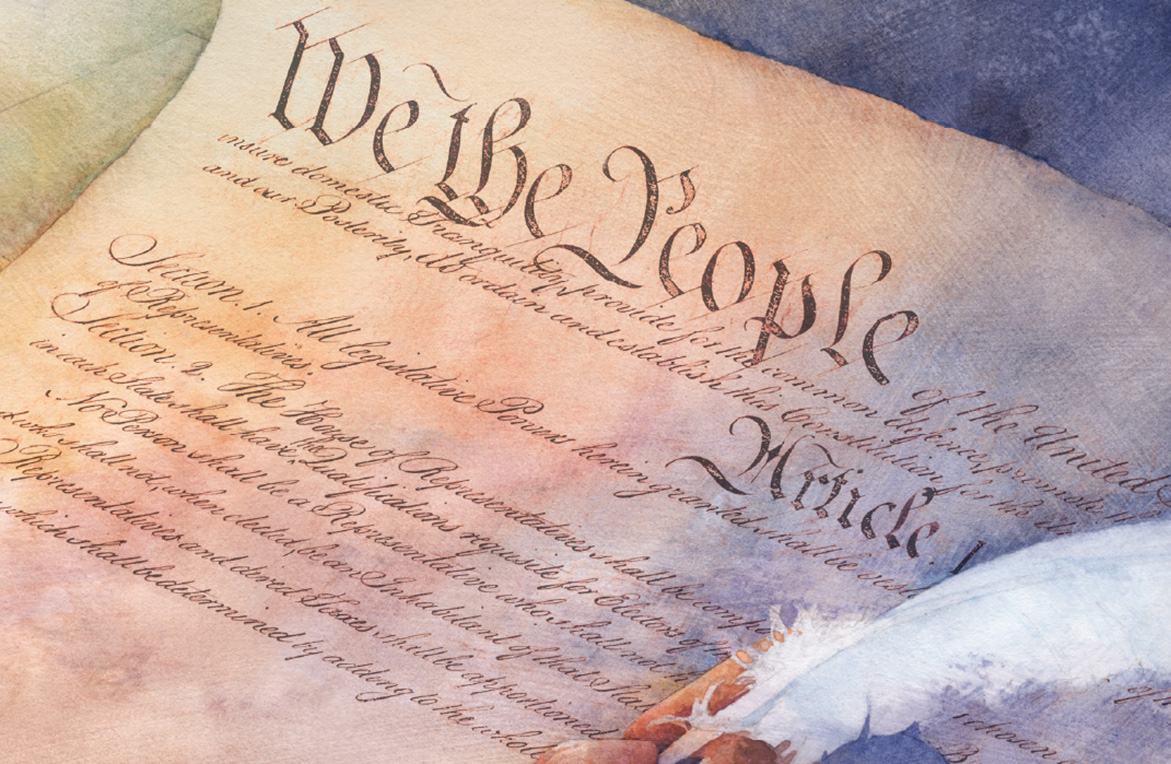 We the People
of the United
insure domestic Tranquility, provide for the common defence, promote
and our Posterity, do ordain and establish this Constitution for the
Article. I
Section. 1. All legislative Powers herein granted shall be
of Representatives.
Section. 2. The House of Representatives shall be
in each State shall have the Qualifications requisite for Electors
No Person shall be a Representative who shall not
shall not, when elected, be an Inhabitant of that State
Representatives and direct Taxes shall be apportioned
which shall be determined by adding to the whole
chosen